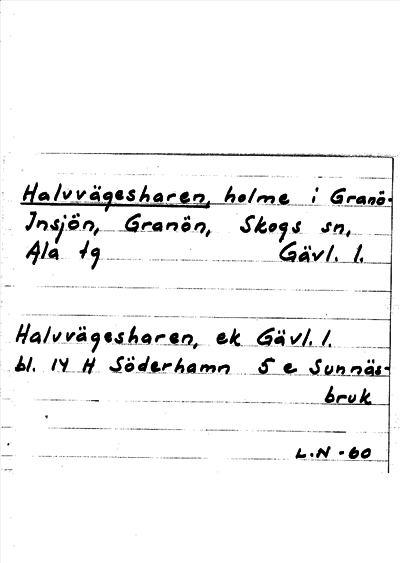 Halvvägesharen, holme i Granö-
Insjön, Granön, Skogs sn,
Ala tg Gävl. l.
Halvvägesharen, ek Gävl. l.
bl. 14 H Söderhamn 5 e Sunnäs-
bruk
L.N -60